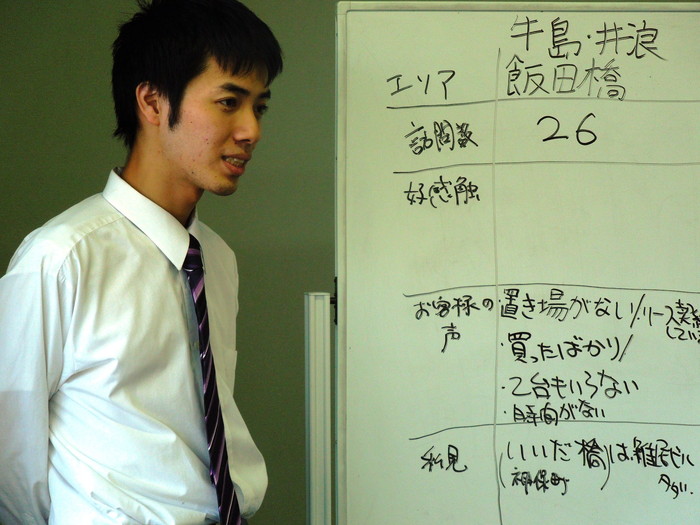 牛島・井浪
エリア 飯田橋
訪問数 26
好感触
お客様の声 置き場がない/リース契約している
・買ったばかり/
・2台もいらない
・時間がない
私見 いいだ橋は雑居ビル
(神保町) 多い。